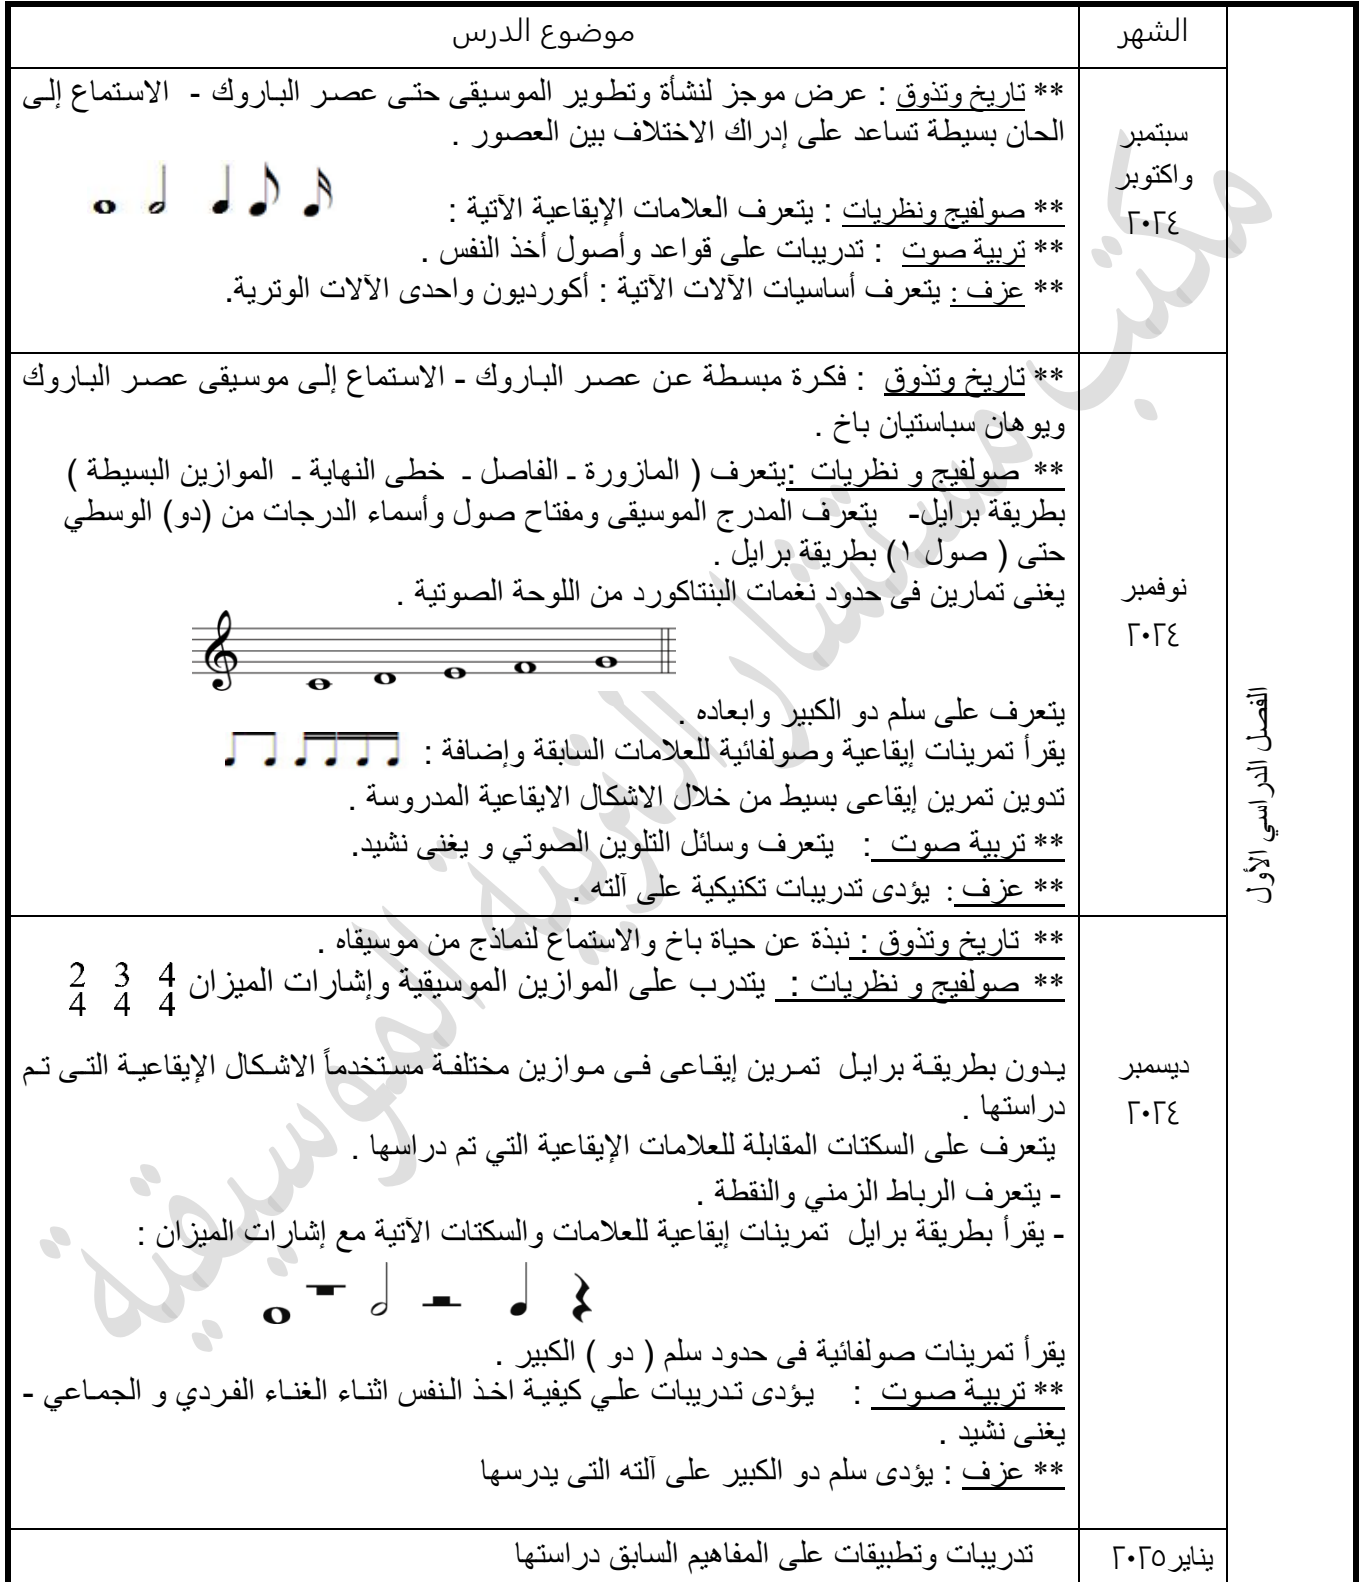 الشهر
موضوع الدرس
الفصل الدراسي الأول
سبتمبر
واكتوبر
٢٠٢٤
** تاريخ وتذوق : عرض موجز لنشأة وتطوير الموسيقى حتى عصر الباروك - الاستماع إلى
الحان بسيطة تساعد على إدراك الاختلاف بين العصور .
** صولفيج ونظريات : يتعرف العلامات الإيقاعية الآتية :
** تربية صوت : تدريبات على قواعد وأصول أخذ النفس .
** عزف : يتعرف أساسيات الآلات الآتية : أكورديون واحدى الآلات الوترية.
نوفمبر
٢٠٢٤
** تاريخ وتذوق : فكرة مبسطة عن عصر الباروك - الاستماع إلى موسيقى عصر الباروك
ويوهان سباستيان باخ .
** صولفيج و نظريات :يتعرف ( المازورة ـ الفاصل ـ خطى النهاية ـ الموازين البسيطة )
بطريقة برايل- يتعرف المدرج الموسيقى ومفتاح صول وأسماء الدرجات من (دو) الوسطي
حتى ( صول ١) بطريقة برايل .
يغنى تمارين فى حدود نغمات البنتاكورد من اللوحة الصوتية .
يتعرف على سلم دو الكبير وابعاده .
يقرأ تمرينات إيقاعية وصولفائية للعلامات السابقة وإضافة :
تدوين تمرين إيقاعى بسيط من خلال الاشكال الايقاعية المدروسة .
** تربية صوت : يتعرف وسائل التلوين الصوتي و يغنى نشيد.
** عزف : يؤدى تدريبات تكنيكية على آلته .
ديسمبر
٢٠٢٤
** تاريخ وتذوق : نبذة عن حياة باخ والاستماع لنماذج من موسيقاه .
** صولفيج و نظريات : يتدرب على الموازين الموسيقية وإشارات الميزان 2 3 4
4 4 4
يدون بطريقة برايل تمرين إيقاعى فى موازين مختلفة مستخدماً الاشكال الإيقاعية التى تم
دراستها .
يتعرف على السكتات المقابلة للعلامات الإيقاعية التي تم دراسها .
- يتعرف الرباط الزمني والنقطة .
- يقرأ بطريقة برايل تمرينات إيقاعية للعلامات والسكتات الآتية مع إشارات الميزان :
يقرأ تمرينات صولفائية فى حدود سلم ( دو ) الكبير .
** تربية صوت : يؤدى تدريبات علي كيفية اخذ النفس اثناء الغناء الفردي و الجماعي -
يغنى نشيد .
** عزف : يؤدى سلم دو الكبير على آلته التى يدرسها
يناير٢٠٢٥
تدريبات وتطبيقات على المفاهيم السابق دراستها
مكتب مستشار التربية الموسيقية